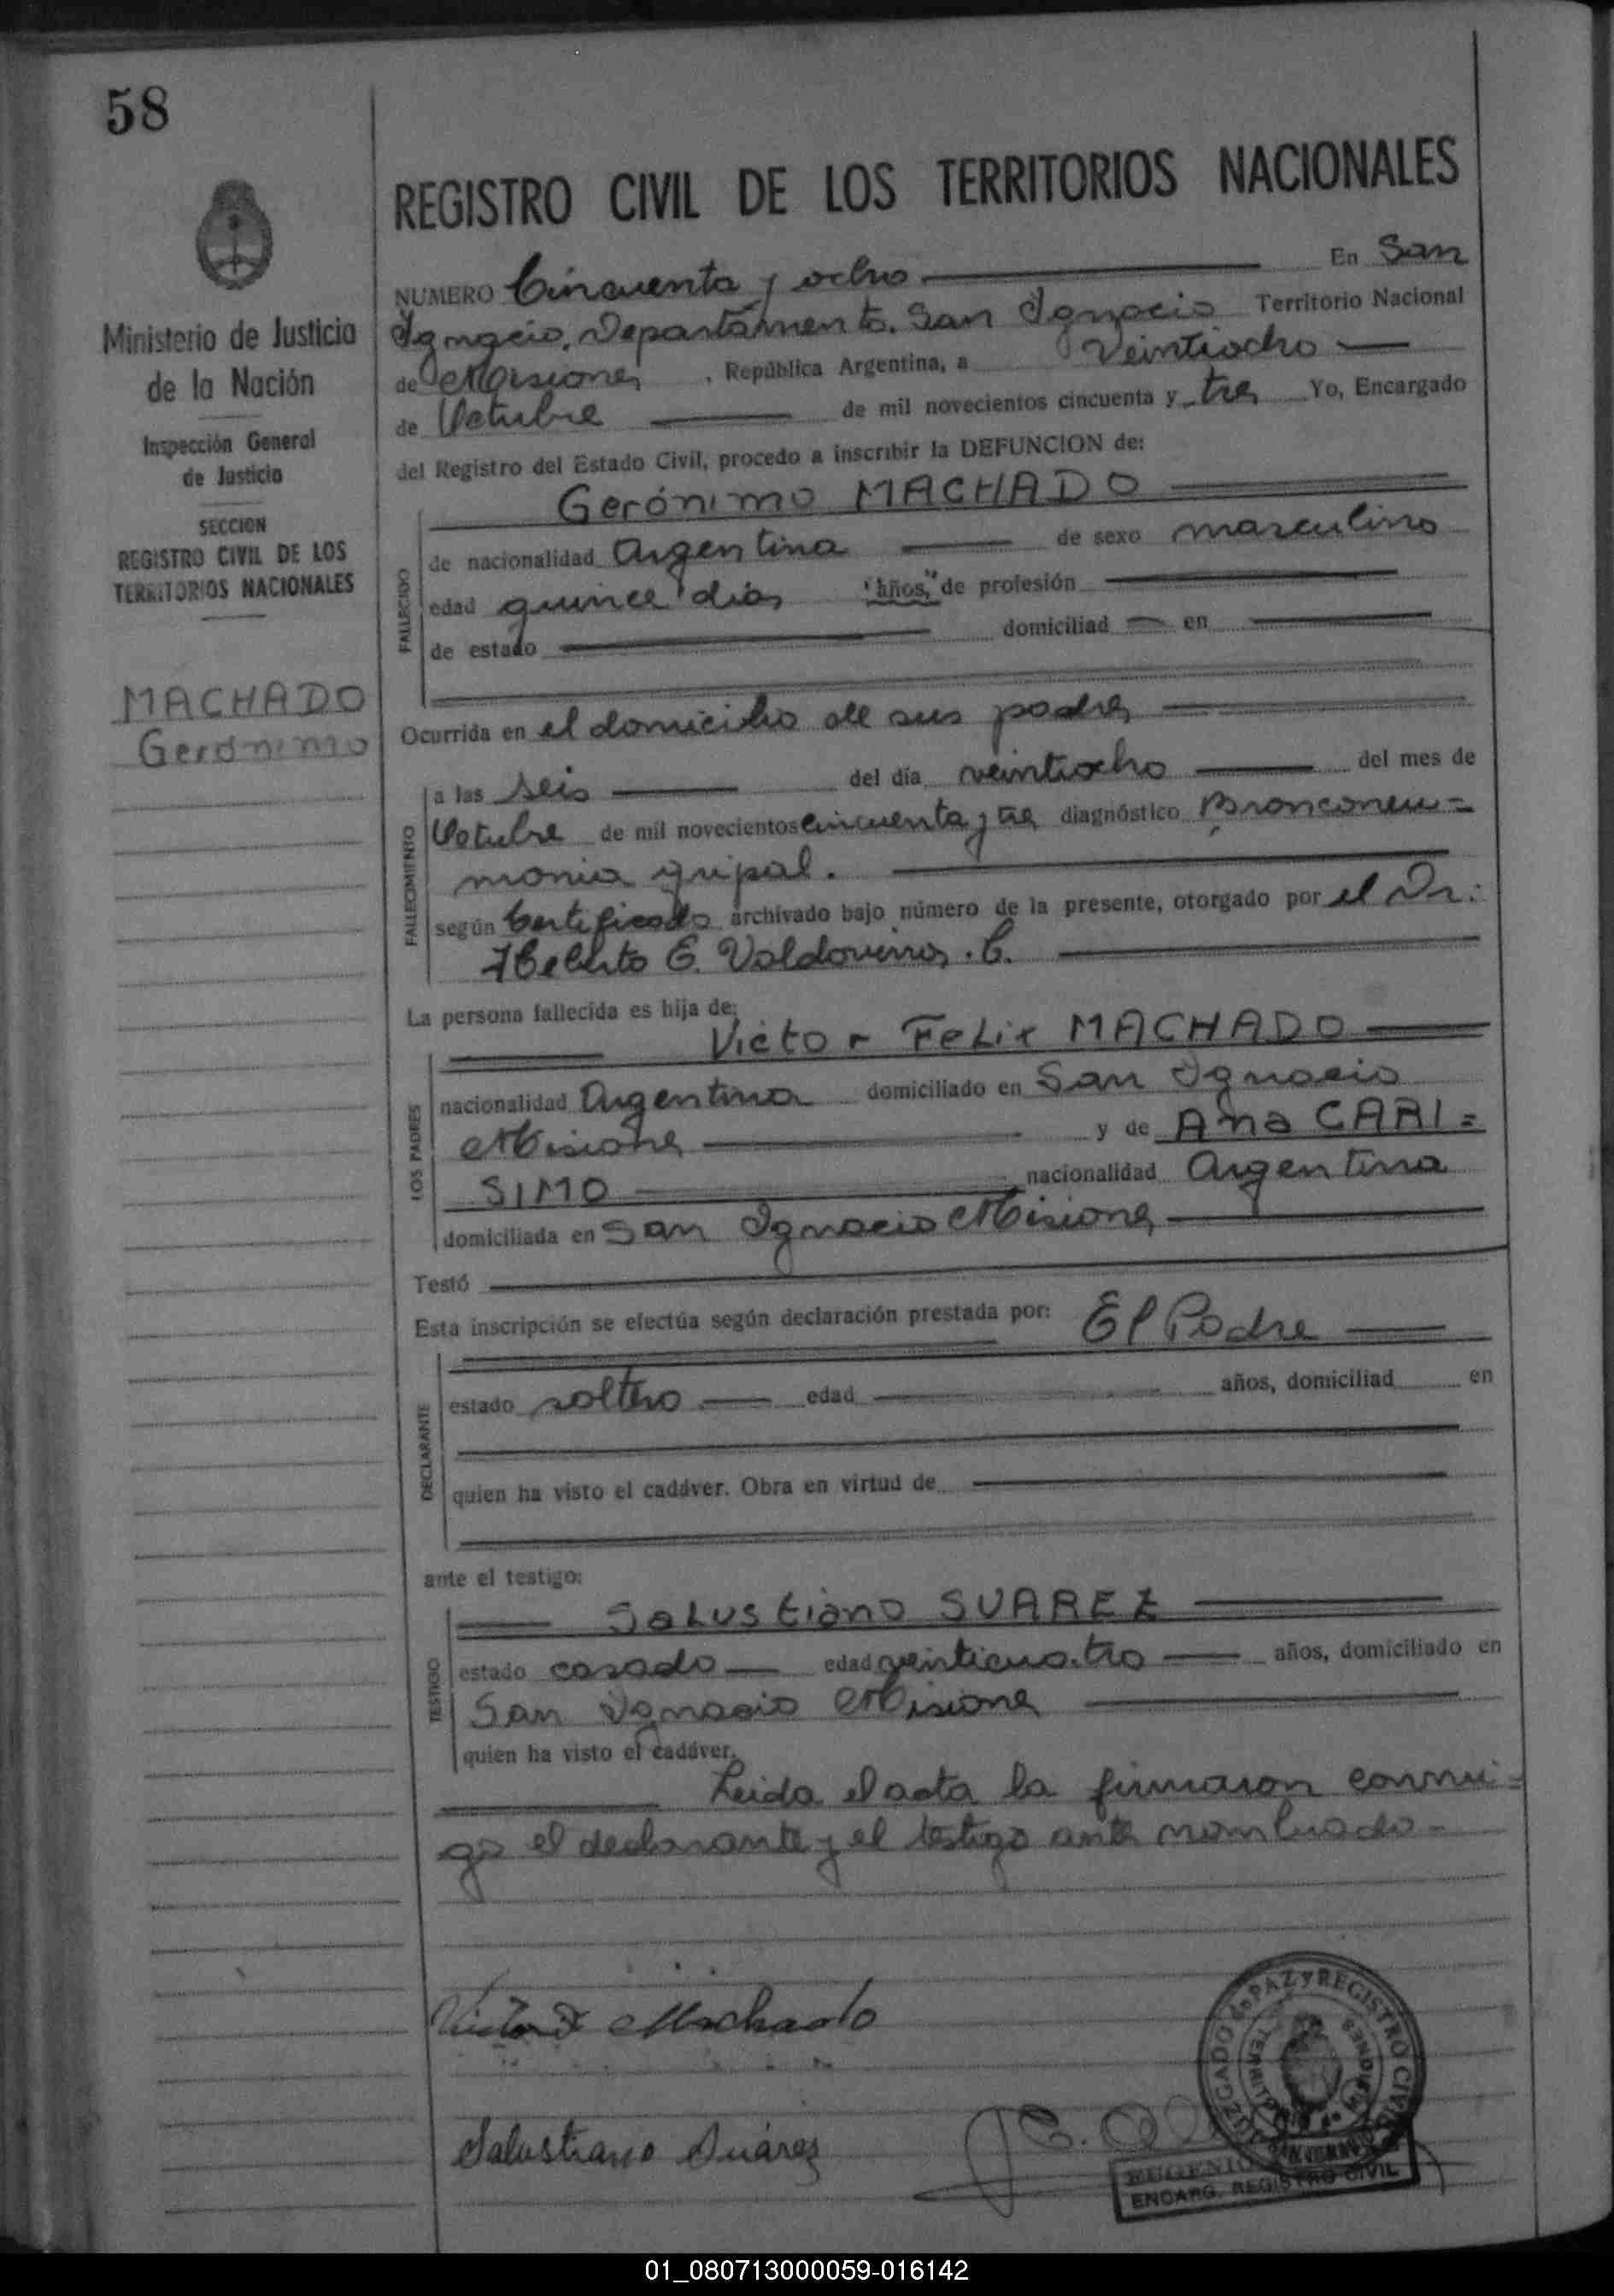 58
Ministerio de Justicia
de la Nación
Inspección General
de Justicia
SECCION
REGISTRO CIVIL DE LOS
TERRITORIOS NACIONALES
MACHADO
Gerónimo
REGISTRO CIVIL DE LOS TERRITORIOS NACIONALES
NUMERO Cincuenta y ocho En San
Ignacio, Departamento San Ignacio Territorio Nacional
de Misiones, República Argentina, a Veintiocho
de Octubre de mil novecientos cincuenta y tres Yo, Encargado
del Registro del Estado Civil, procedo a inscribir la DEFUNCION de:
Gerónimo MACHADO
FALLECIDO
de nacionalidad Argentina de sexo masculino
edad quince días "años," de profesión
de estado domiciliad en
Ocurrida en el domicilio de sus padres
FALLECIMIENTO
a las seis del día veintiocho del mes de
Octubre de mil novecientos cincuenta y tres diagnóstico Bronconeu=
monia gripal.
según Certificado archivado bajo número de la presente, otorgado por el Dr.
E. Valdovinos. C.
La persona fallecida es hija de:
Victor Felix MACHADO
LOS PADRES
nacionalidad Argentina domiciliado en San Ignacio
Misiones y de Ana CARI=
SIMO nacionalidad Argentina
domiciliada en San Ignacio Misiones
Testó
Esta inscripción se efectúa según declaración prestada por: El Padre
DECLARANTE
estado soltero edad años, domiciliad en
quien ha visto el cadáver. Obra en virtud de
ante el testigo:
Salustiano SUAREZ
TESTIGO
estado casado edad veinticuatro años, domiciliado en
San Ignacio Misiones
quien ha visto el cadáver.
Leida el acta la firmaron conmi=
go el declarante y el testigo ante nombrado-
Victor F Machado
Salustiano Suárez
JUZGADO de PAZ y REGISTRO CIVIL
MISIONES
SAN IGNACIO
EUGENIO
ENCARG. REGISTRO CIVIL
01_080713000059-016142